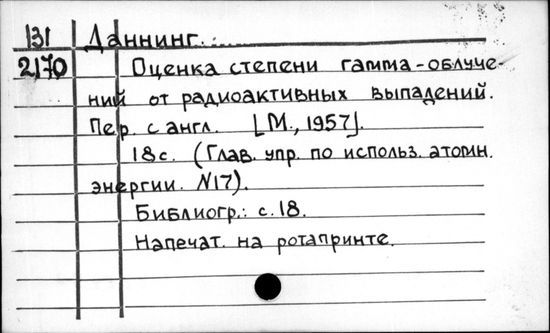 131 Даннинг...
2170 Оценка степени гамма-облуче-
ний от радиоактивных выпадений.
Пер. с англ. [М., 1957].
18с. (Глав. упр. по использ. атомн.
энергии. N17).
Библиогр.: с.18.
Напечат. на ротапринте.